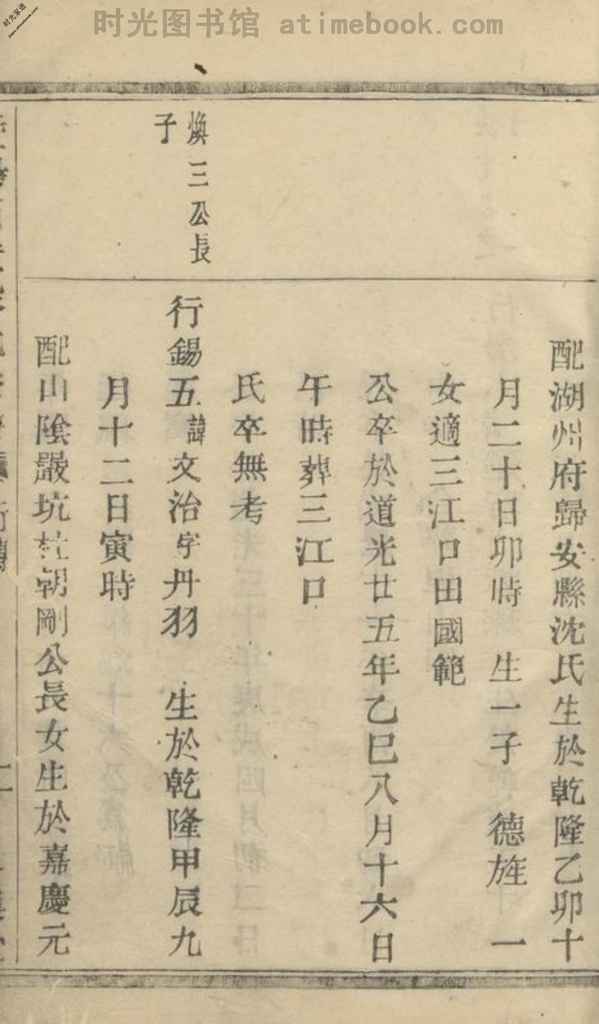 时光图书馆 - atimebook.com
配湖州府歸安縣沈氏生於乾隆乙卯十
月二十日卯時 生一子 德旌 一
女適三江口田國範
公卒於道光廿五年乙巳八月十六日
午時葬三江口
氏卒無考
煥三公長
子
行錫五諱文治字丹羽 生於乾隆甲辰九
月十二日寅時
配山陰嚴坑杜朝剛公長女生於嘉慶元